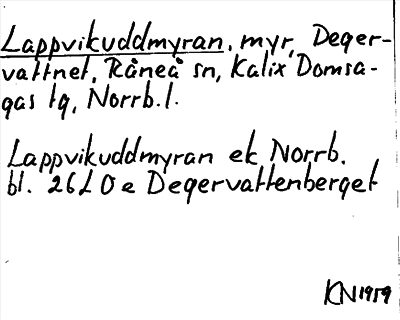 Lappvikuddmyran, myr, Deger-
vattnet, Råneå sn, Kalix Domsa-
gas tg, Norrb.l.
Lappvikuddmyran ek Norrb.
bl. 26L 0e Degervattenberget
KN1959